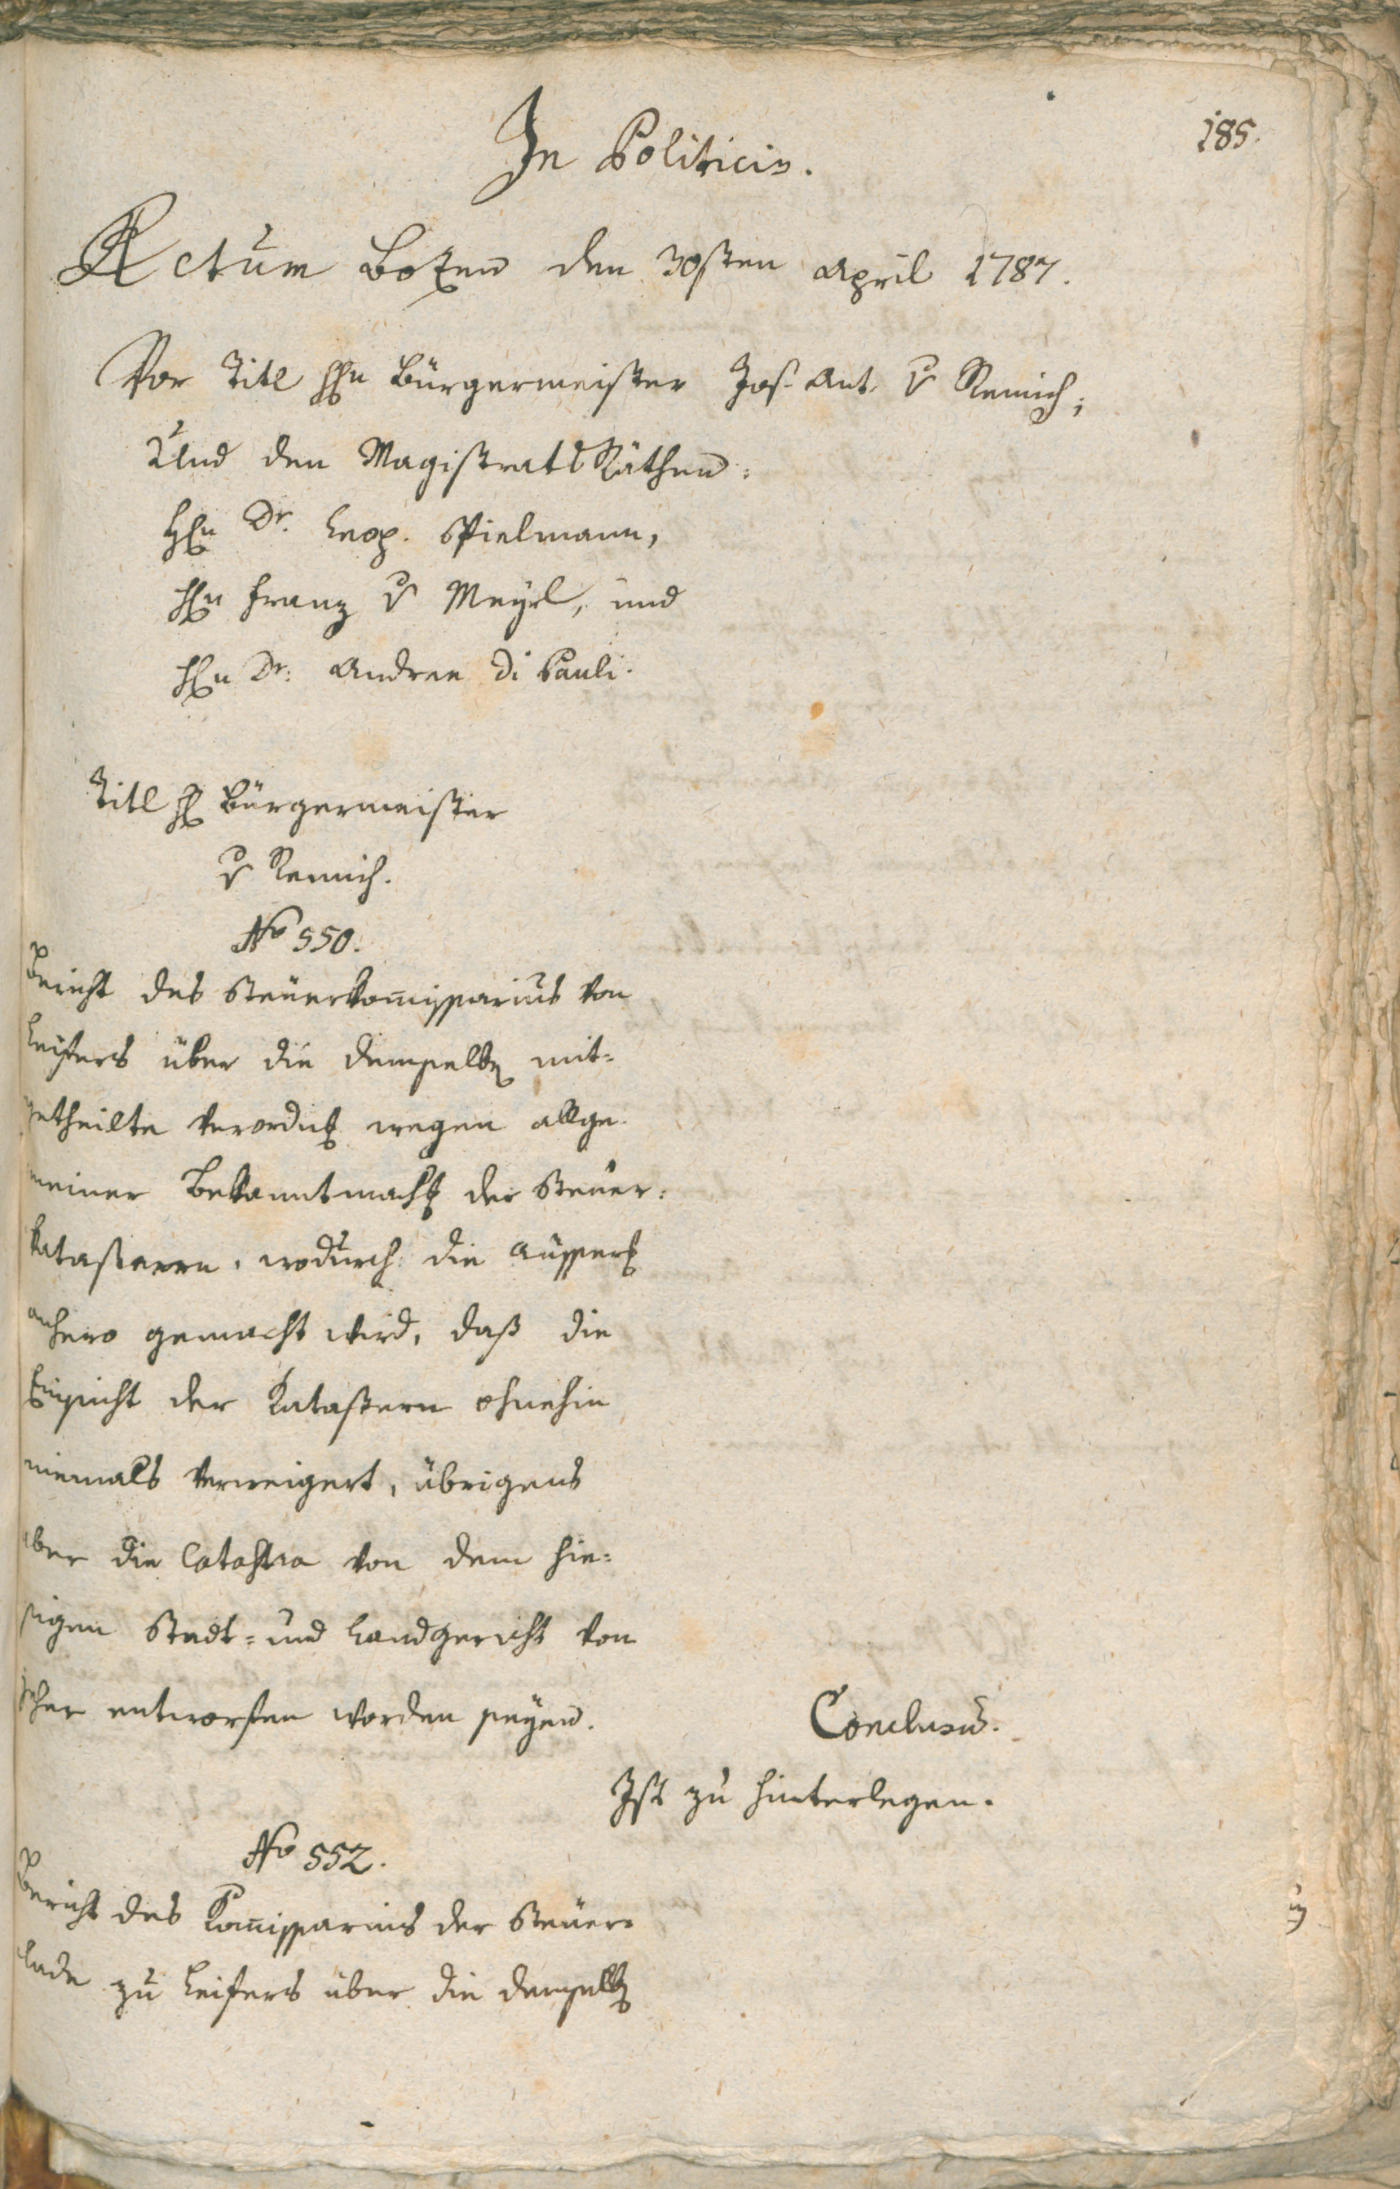 185.
In Politicis.
Actum Bozen den 30sten April 1787.
Vor Titl Hℓn Bürgermeister Jos. Ant. v Remich;
Und den Magistrats Räthen:
Hℓn Dr. Leop. Spielmann,
Hℓn Franz v Mayrl, und
Hℓn Dr. Andree Di Pauli.
Titl H Bürgermeister
v Remich.
No 550.
Bericht des Steuerkom̄issarius von
Leifers über die demselbℓ mit=
getheilte Verordnℓ wegen allge
meiner Bekanntmachℓ der Steuer=
katastern, wodurch die Äusserℓ
anhero gemacht wird, daß die
Einsicht der Katastern ohnehin
niemals verweigert, übrigens
aber die Catastra von dem hie=
sigen Stadt= und Landgericht von
eher entworfen worden seyen.
Conclusum̄.
Ist zu hinterlegen.
No 552.
Bericht des Kom̄issarius der Steuer=
lade zu Leifers über die demselbℓ